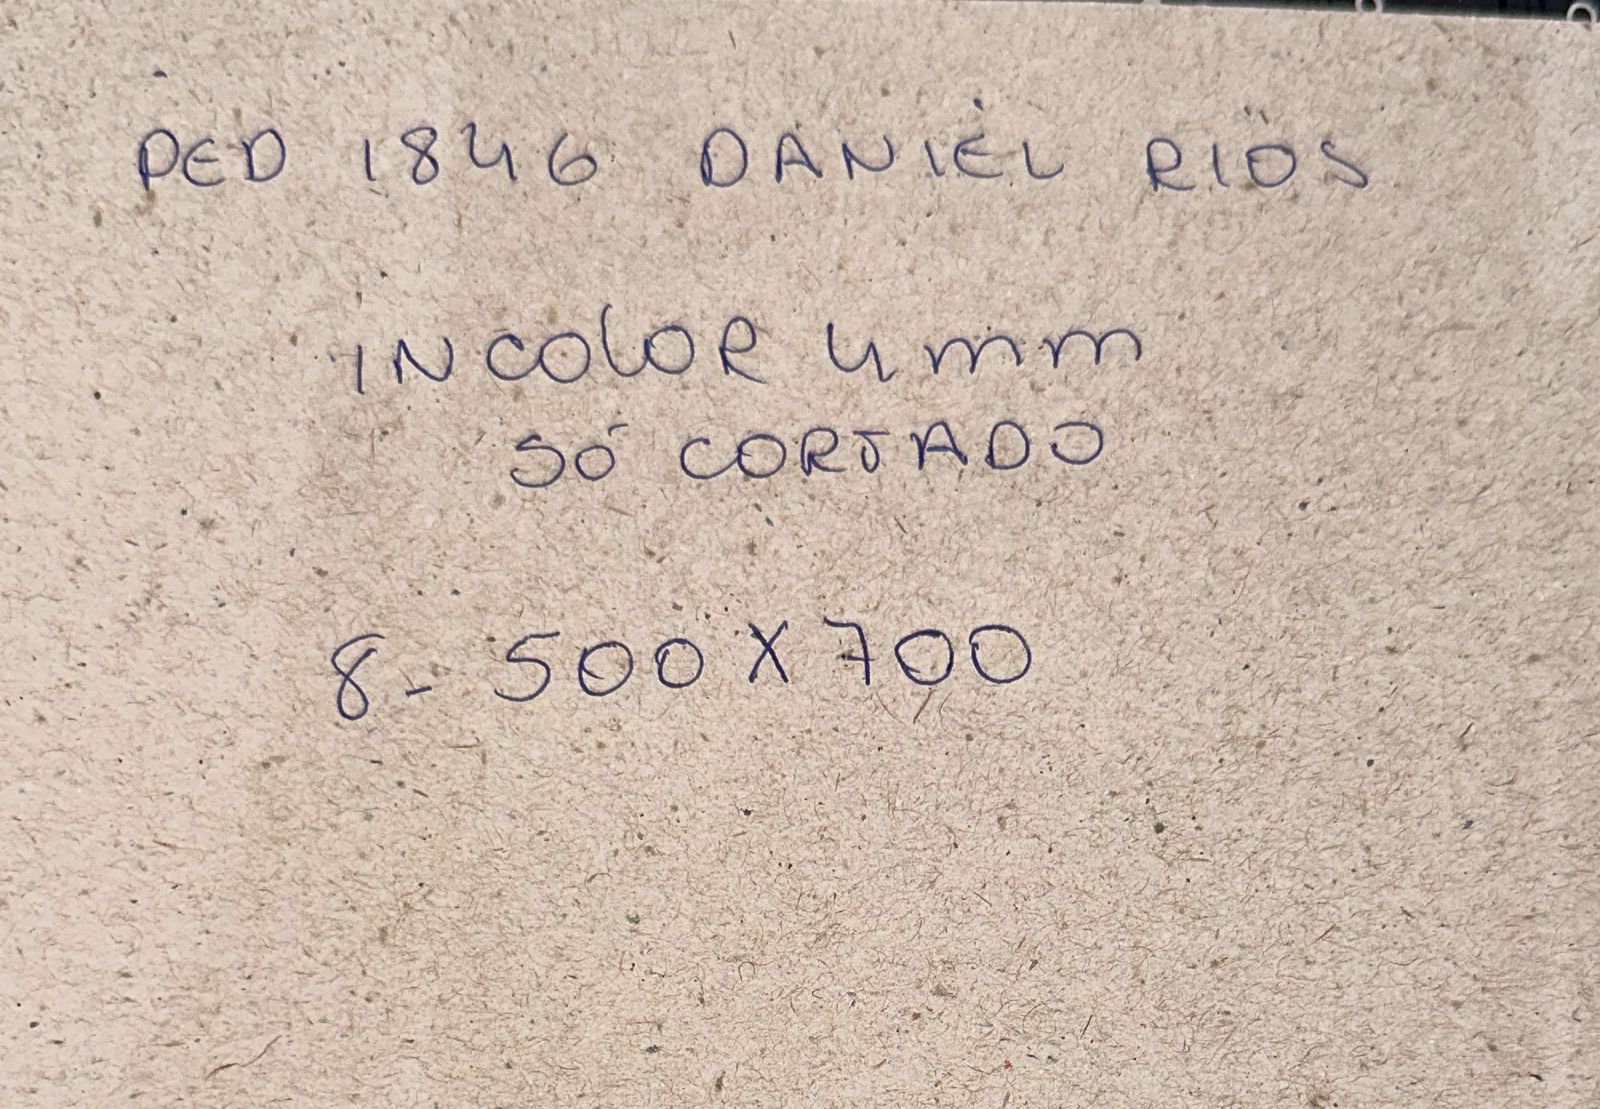 PED 1846 DANIEL RIOS
INCOLOR 4mm
SÓ CORTADO
8- 500 X 700